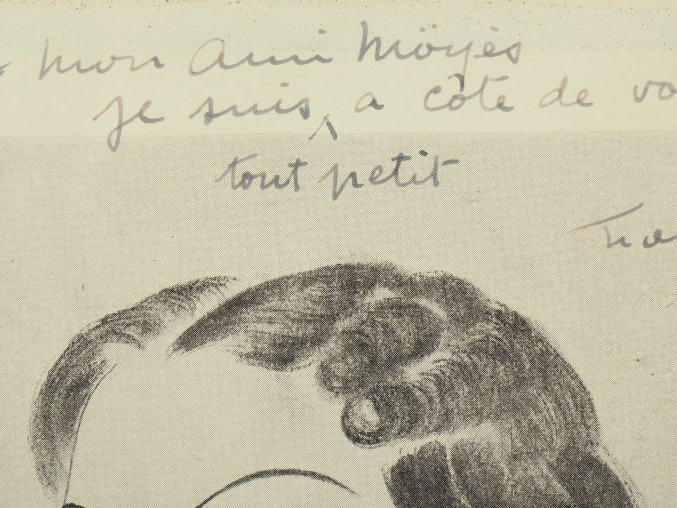 mon ami Möyès
je suis, a côte de
tout petit